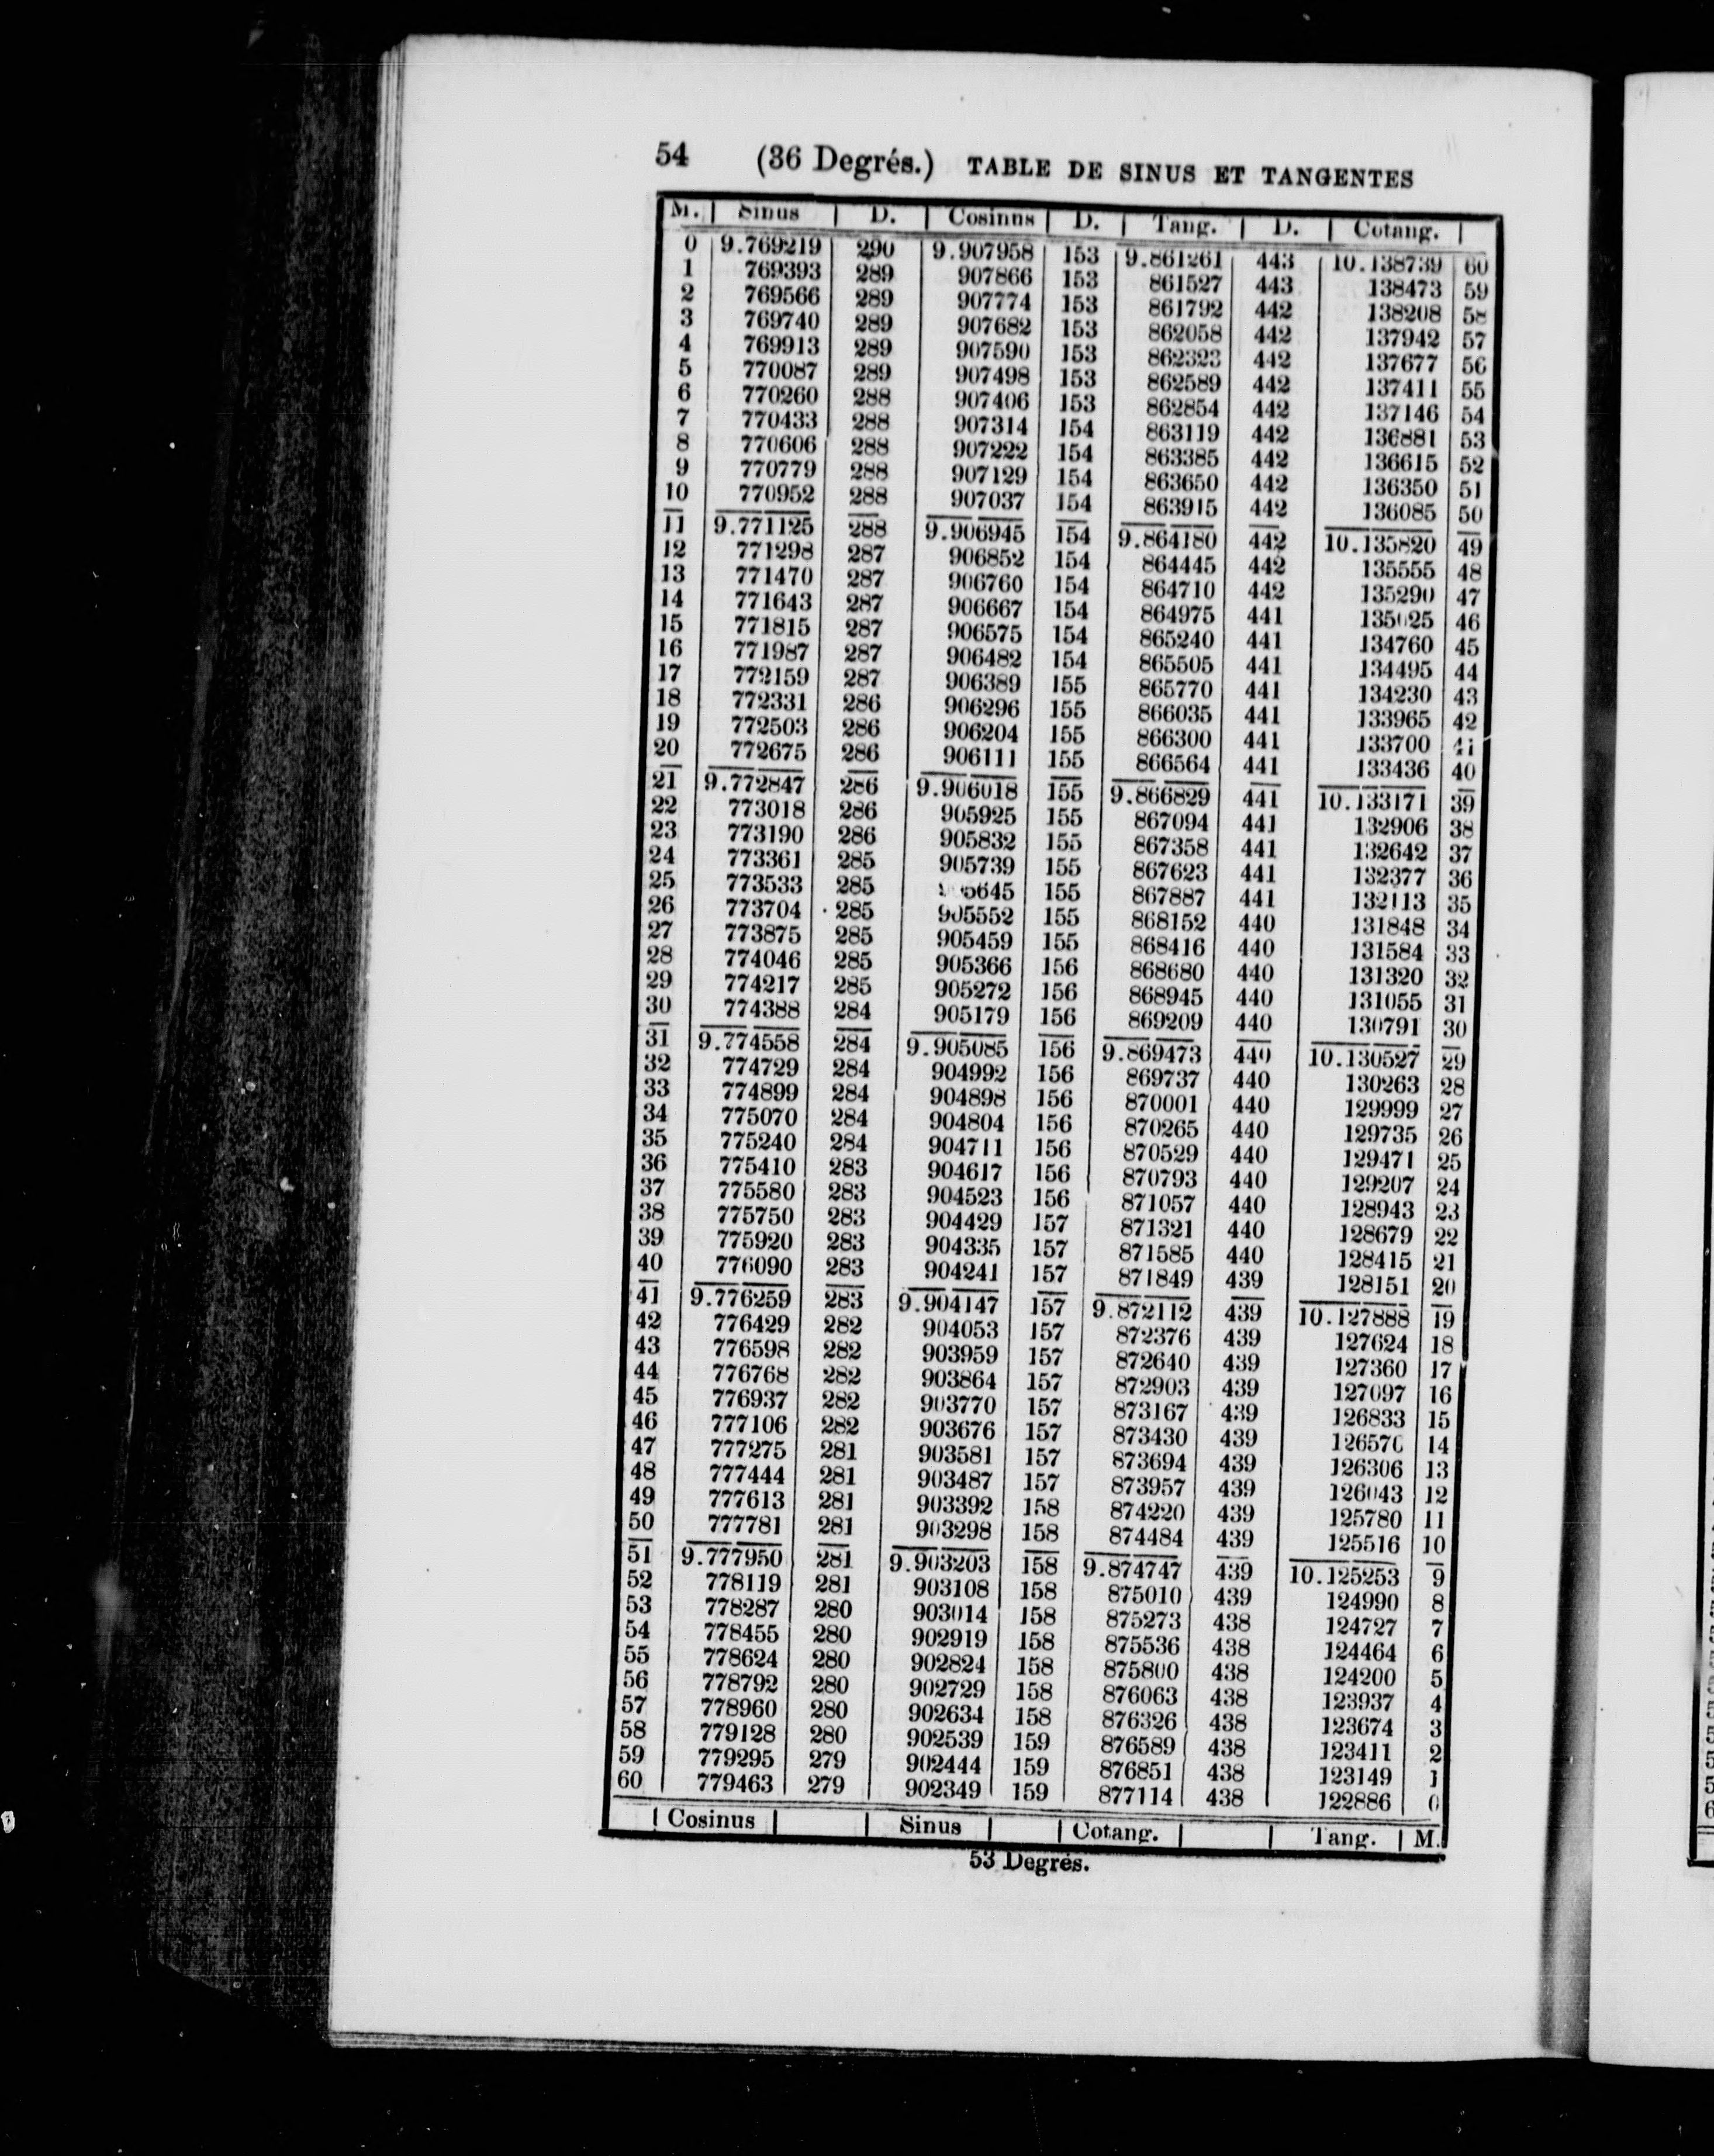 54 (36 Degrés.) TABLE DE SINUS ET TANGENTES
M. Sinus D. Cosinus D. Tang. D. Cotang.
0 9.769219 290 9.907958 153 9.861261 443 10.138739 60
1 769393 289 907866 153 861527 443 138473 59
2 769566 289 907774 153 861792 442 138208 58
3 769740 289 907682 153 862058 442 137942 57
4 769913 289 907590 153 862323 442 137677 56
5 770087 289 907498 153 862589 442 137411 55
6 770260 288 907406 153 862854 442 137146 54
7 770433 288 907314 154 863119 442 136881 53
8 770606 288 907222 154 863385 442 136615 52
9 770779 288 907129 154 863650 442 136350 51
10 770952 288 907037 154 863915 442 136085 50
11 9.771125 288 9.906945 154 9.864180 442 10.135820 49
12 771298 287 906852 154 864445 442 135555 48
13 771470 287 906760 154 864710 442 135290 47
14 771643 287 906667 154 864975 441 135025 46
15 771815 287 906575 154 865240 441 134760 45
16 771987 287 906482 154 865505 441 134495 44
17 772159 287 906389 155 865770 441 134230 43
18 772331 286 906296 155 866035 441 133965 42
19 772503 286 906204 155 866300 441 133700 41
20 772675 286 906111 155 866564 441 133436 40
21 9.772847 286 9.906018 155 9.866829 441 10.133171 39
22 773018 286 905925 155 867094 441 132906 38
23 773190 286 905832 155 867358 441 132642 37
24 773361 285 905739 155 867623 441 132377 36
25 773533 285 155 867887 441 132113 35
26 773704 285 905552 155 868152 440 131848 34
27 773875 285 905459 155 868416 440 131584 33
28 774046 285 905366 156 868680 440 131320 32
29 774217 285 905272 156 868945 440 131055 31
30 774388 284 905179 156 869209 440 130791 30
31 9.774558 284 9.905085 156 9.869473 440 10.130527 29
32 774729 284 904992 156 869737 440 130263 28
33 774899 284 904898 156 870001 440 129999 27
34 775070 284 904804 156 870265 440 129735 26
35 775240 284 904711 156 870529 440 129471 25
36 775410 283 904617 156 870793 440 129207 24
37 775580 283 904523 156 871057 440 128943 23
38 775750 283 904429 157 871321 440 128679 22
39 775920 283 904335 157 871585 440 128415 21
40 776090 283 904241 157 871849 439 128151 20
41 9.776259 283 9.904147 157 9.872112 439 10.127888 19
42 776429 282 904053 157 872376 439 127624 18
43 776598 282 903959 157 872640 439 127360 17
44 776768 282 903864 157 872903 439 127097 16
45 776937 282 903770 157 873167 439 126833 15
46 777106 282 903676 157 873430 439 126570 14
47 777275 281 903581 157 873694 439 126306 13
48 777444 281 903487 157 873957 439 126043 12
49 777613 281 903392 158 874220 439 125780 11
50 777781 281 903298 158 874484 439 125516 10
51 9.777950 281 9.903203 158 9.874747 439 10.125253 9
52 778119 281 903108 158 875010 439 124990 8
53 778287 280 903014 158 875273 438 124727 7
54 778455 280 902919 158 875536 438 124464 6
55 778624 280 902824 158 875800 438 124200 5
56 778792 280 902729 158 876063 438 123937 4
57 778960 280 902634 158 876326 438 123674 3
58 779128 280 902539 159 876589 438 123411 2
59 779295 279 902444 159 876851 438 123149 1
60 779463 279 902349 159 877114 438 122886 0
Cosinus Sinus Cotang. Tang. M.
53 Degrés.